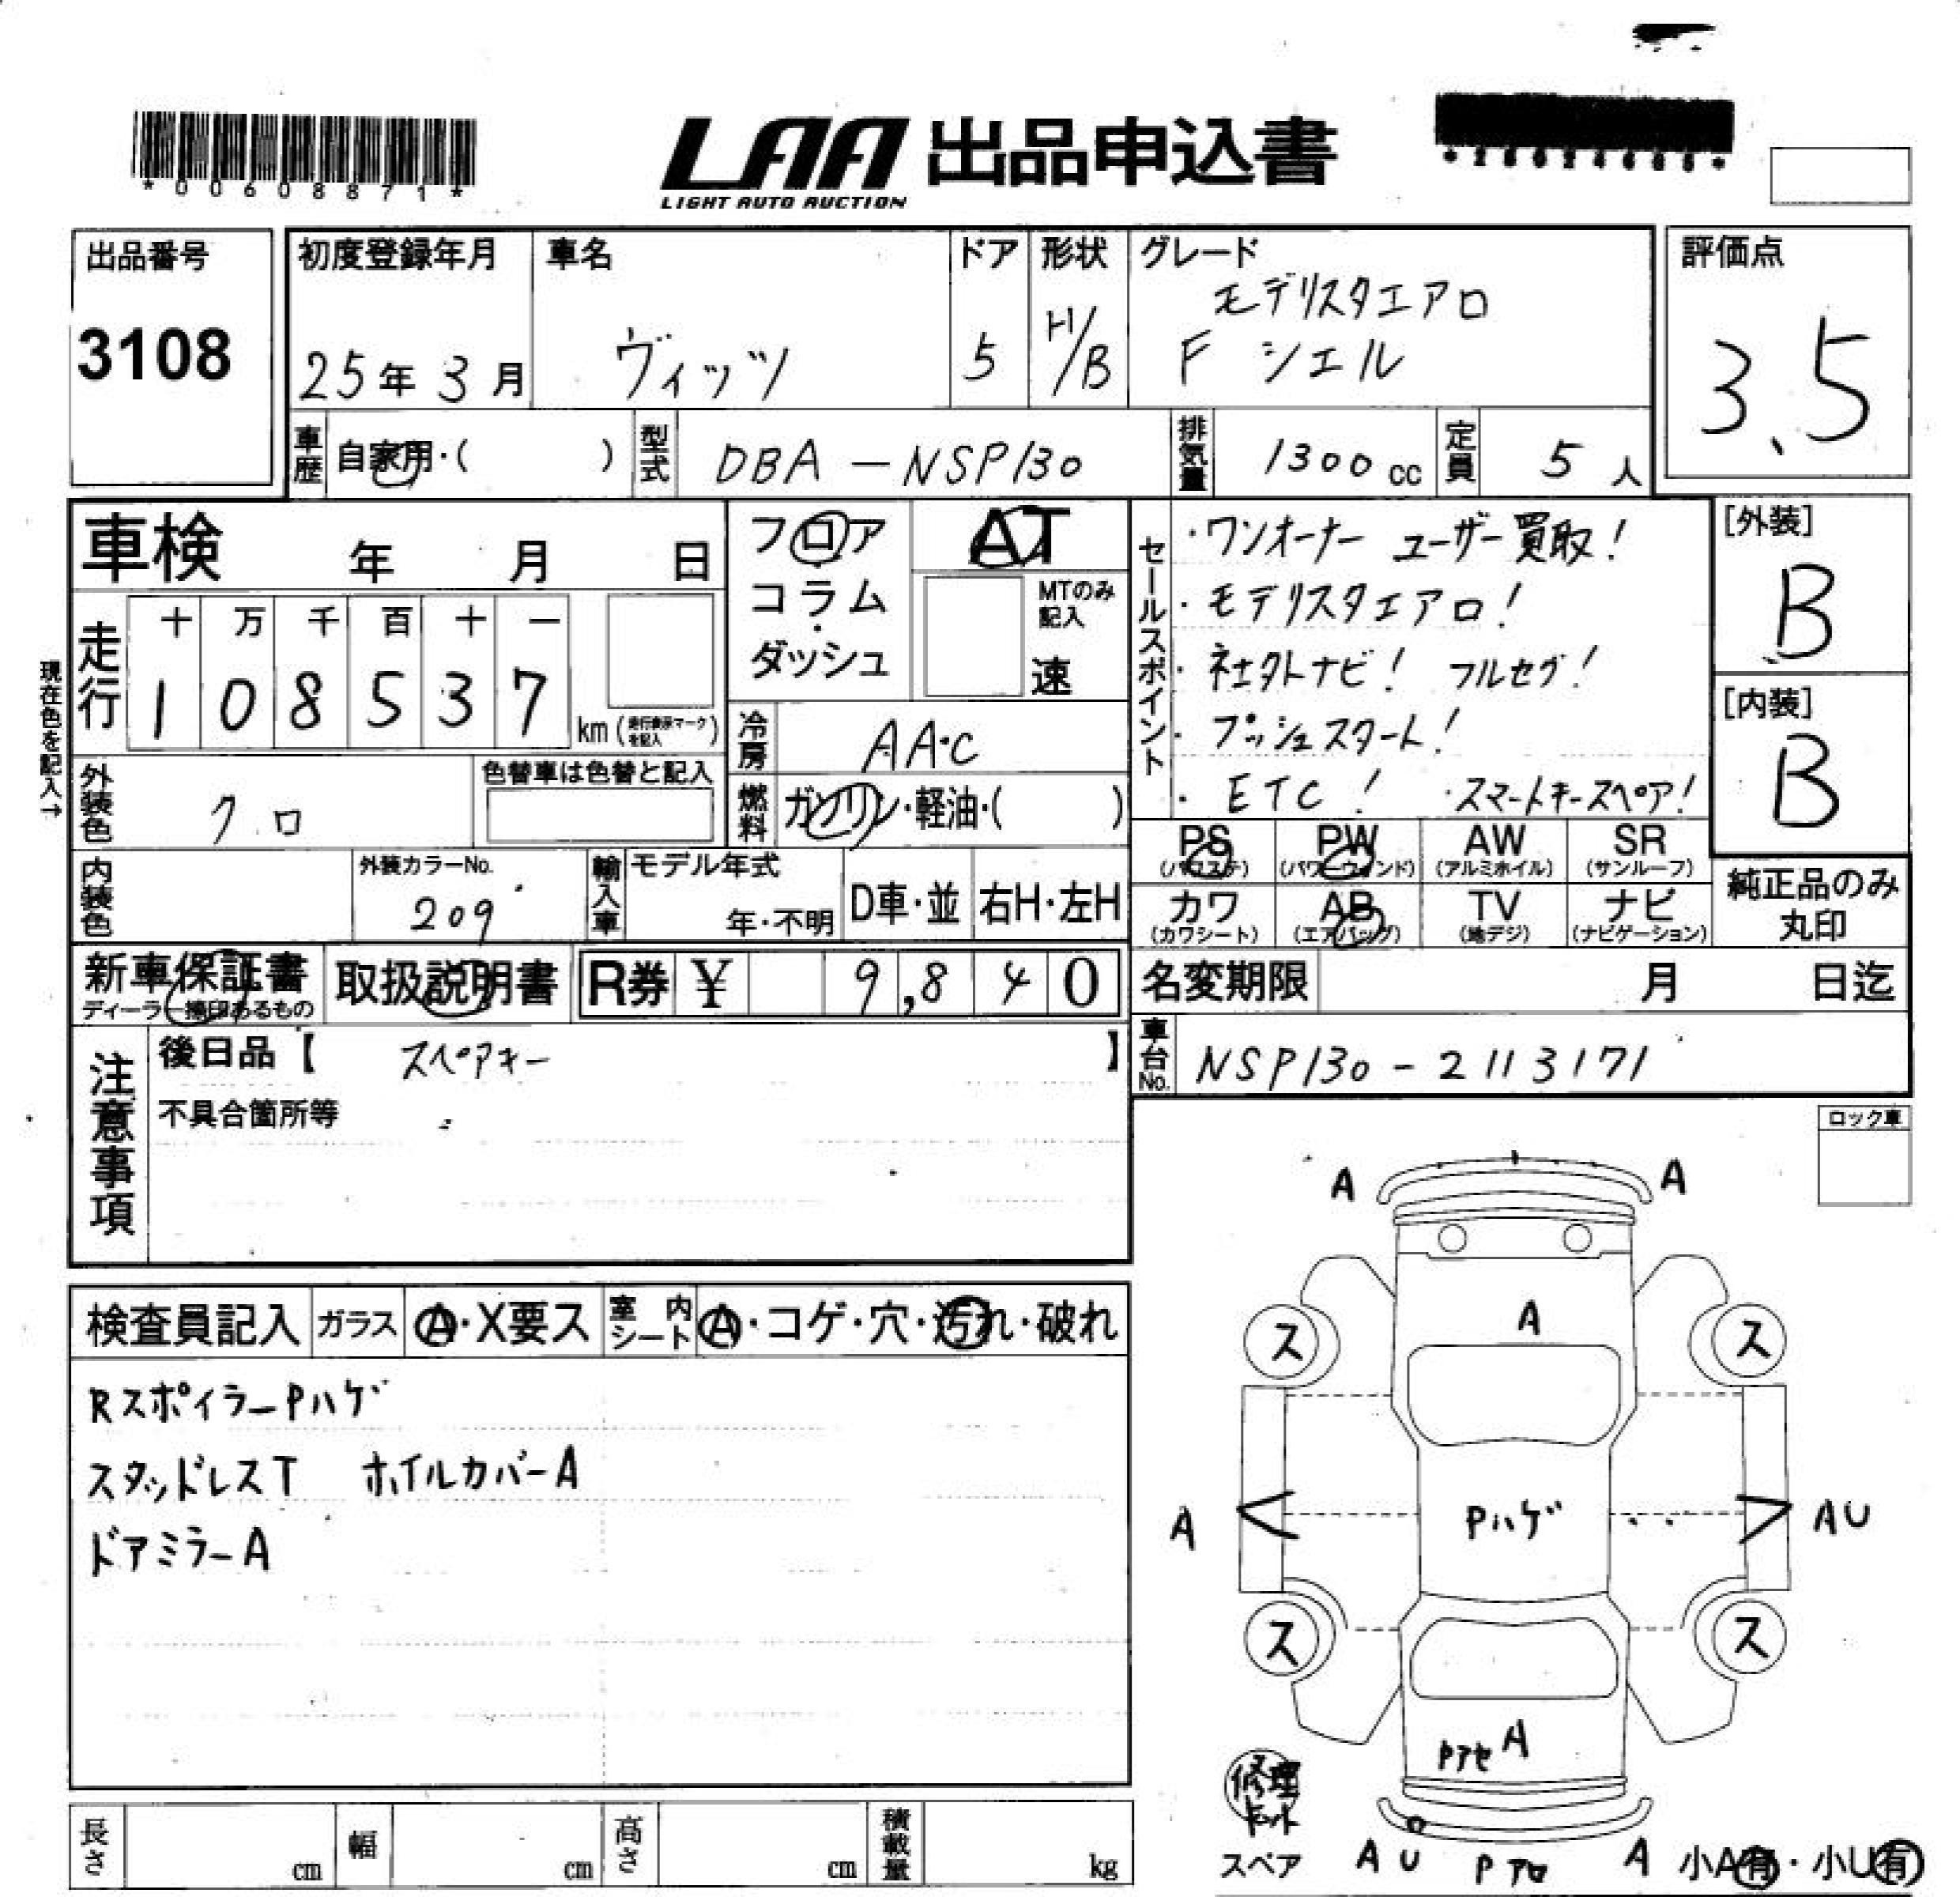 *00608871*
LAA 出品申込書
LIGHT AUTO AUCTION
出品番号
3108
初度登録年月
25年3月
車名
ヴィッツ
ドア
5
形状
H/B
グレード
モデリスタエアロ
F シエル
評価点
3.5
車歴
自家用・( )
型式
DBA-NSP130
排気量
1300cc
定員
5人
車検 年 月 日
フロア
コラム
ダッシュ
AT
MTのみ記入
速
セールスポイント
・ワンオーナー ユーザー買取!
・モデリスタエアロ!
・社外ナビ! フルセグ!
・プッシュスタート!
・ETC! ・スマートキースペア!
[外装]
B
[内装]
B
現在色を記入→
走行
十 万 千 百 十 一
1 0 8 5 3 7
km(走行表示マークを記入)
冷房
AA・C
外装色
クロ
色替車は色替と記入
燃料
ガソリン・軽油・( )
PS PW AW SR
(パワステ) (パワーウィンド) (アルミホイル) (サンルーフ)
カワ AB TV ナビ
(カワシート) (エアバッグ) (地デジ) (ナビゲーション)
純正品のみ
丸印
内装色
外装カラーNo.
209
輸入車
モデル年式
年・不明
D車・並
右H・左H
新車保証書
ディーラー捺印あるもの
取扱説明書
R券 ¥ 9,840
名変期限 月 日迄
車台No.
NSP130-2113171
注意事項
後日品【 スペアキー 】
不具合箇所等
ロック車
検査員記入
ガラス
A・X要ス
室内シート
A・コゲ・穴・汚れ・破れ
RスポイラーPハゲ
スタッドレスT ホイルカバーA
ドアミラーA
A A
A
ス ス
A Pハゲ AU
ス ス
Pアセ A
修理キット
スペア
AU A 小A有・小U有
長さ cm
幅 cm
高さ cm
積載量 kg